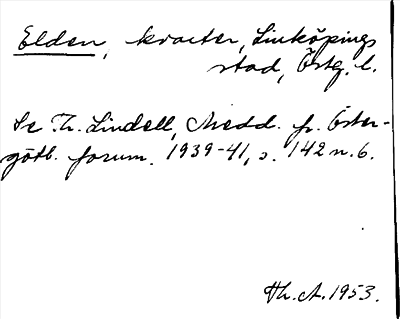 Elden, kvarter, Linköpings
stad, Östg. l.
Se Th. Lindell, Medd. fr. Öster-
götl. fornm. 1939-41, s. 142 n. 6.
Th. A. 1953.